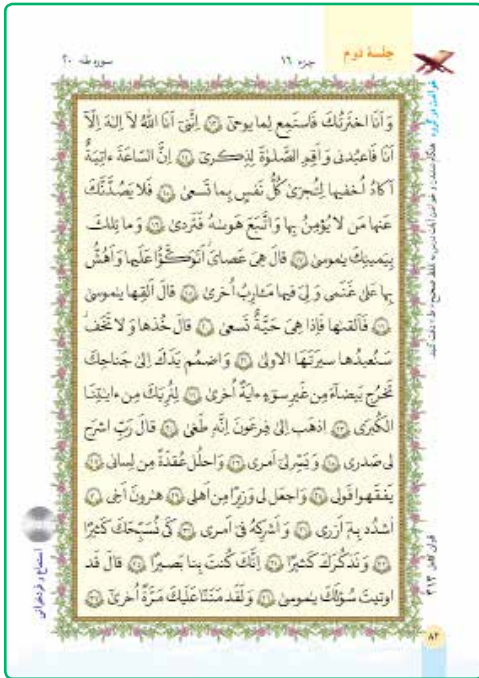 جلسهٔ دوم
جزء ۱۶
سوره طه ۲۰
وَ اَنَا اختَرتُكَ فَاستَمِع لِما يوحىٰ ﴿۱۳﴾ اِنَّنى اَنَا اللّٰهُ لا اِلٰهَ اِلّا
اَنَا فَاعبُدنى وَ اَقِمِ الصَّلوٰةَ لِذِكرى ﴿۱۴﴾ اِنَّ السّاعَةَ ءاتِيَةٌ
اَكادُ اُخفيها لِتُجزىٰ كُلُّ نَفسٍ بِما تَسعىٰ ﴿۱۵﴾ فَلا يَصُدَّنَّكَ
عَنها مَن لا يُؤمِنُ بِها وَ اتَّبَعَ هَوىٰهُ فَتَردىٰ ﴿۱۶﴾ وَ ما تِلكَ
بِيَمينِكَ يٰموسىٰ ﴿۱۷﴾ قالَ هِىَ عَصاىَ اَتَوَكَّؤُا عَلَيها وَ اَهُشُّ
بِها عَلىٰ غَنَمى وَ لِىَ فيها مَئارِبُ اُخرىٰ ﴿۱۸﴾ قالَ اَلقِها يٰموسىٰ
﴿۱۹﴾ فَاَلقىٰها فَاِذا هِىَ حَيَّةٌ تَسعىٰ ﴿۲۰﴾ قالَ خُذها وَ لا تَخَف
سَنُعيدُها سيرَتَهَا الاولىٰ ﴿۲۱﴾ وَ اضمُم يَدَكَ اِلىٰ جَناحِكَ
تَخرُج بَيضآءَ مِن غَيرِ سوٓءٍ ءايَةً اُخرىٰ ﴿۲۲﴾ لِنُرِيَكَ مِن ءايٰتِنَا
الكُبرَى ﴿۲۳﴾ اِذهَب اِلىٰ فِرعَونَ اِنَّهو طَغىٰ ﴿۲۴﴾ قالَ رَبِّ اشرَح
لى صَدرى ﴿۲۵﴾ وَ يَسِّر لى اَمرى ﴿۲۶﴾ وَ احلُل عُقدَةً مِن لِسانى ﴿۲۷﴾
يَفقَهوا قَولى ﴿۲۸﴾ وَ اجعَل لى وَزيرًا مِن اَهلى ﴿۲۹﴾ هٰرونَ اَخِى ﴿۳۰﴾
اُشدُد بِهٓ اَزرى ﴿۳۱﴾ وَ اَشرِكهُ فى اَمرى ﴿۳۲﴾ كَى نُسَبِّحَكَ كَثيرًا
﴿۳۳﴾ وَ نَذكُرَكَ كَثيرًا ﴿۳۴﴾ اِنَّكَ كُنتَ بِنا بَصيرًا ﴿۳۵﴾ قالَ قَد
اوتيتَ سُؤلَكَ يٰموسىٰ ﴿۳۶﴾ وَ لَقَد مَنَنّا عَلَيكَ مَرَّةً اُخرىٰ ﴿۳۷﴾
استماع و فردخوانی
قرآن کامل ۳۱۳
۸۲